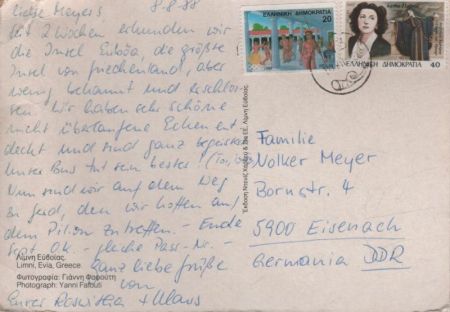 Liebe Meyers 8.8.88
Seit 2 Wochen erkunden wir
die Insel Euböa, die größte
Insel von Griechenland, aber
wenig bekannt und erschlos-
sen. Wir haben sehr schöne
nicht überlaufene Ecken ent
deckt und sind ganz begeistert
Unser Bus tut sein bestes!
Nun sind wir auf dem Weg
zu Gerd, den wir hoffen auf
dem Pilion zu treffen. - Ende
Sept. OK. - gleiche Pass-Nr. -
Ganz liebe Grüße
von
Euren Roswitha + Klaus
Λίμνη Εύβοίας.
Limni, Evia, Greece.
Φωτογραφία: Γιάννη Φαφούτη
Photograph: Yanni Fafouti
ΕΛΛΗΝΙΚΗ ΔΗΜΟΚΡΑΤΙΑ
20
ΕΛΛΗΝΙΚΗ ΔΗΜΟΚΡΑΤΙΑ 40
Familie
Volker Meyer
Bornstr. 4
5900 Eisenach
Germania DDR